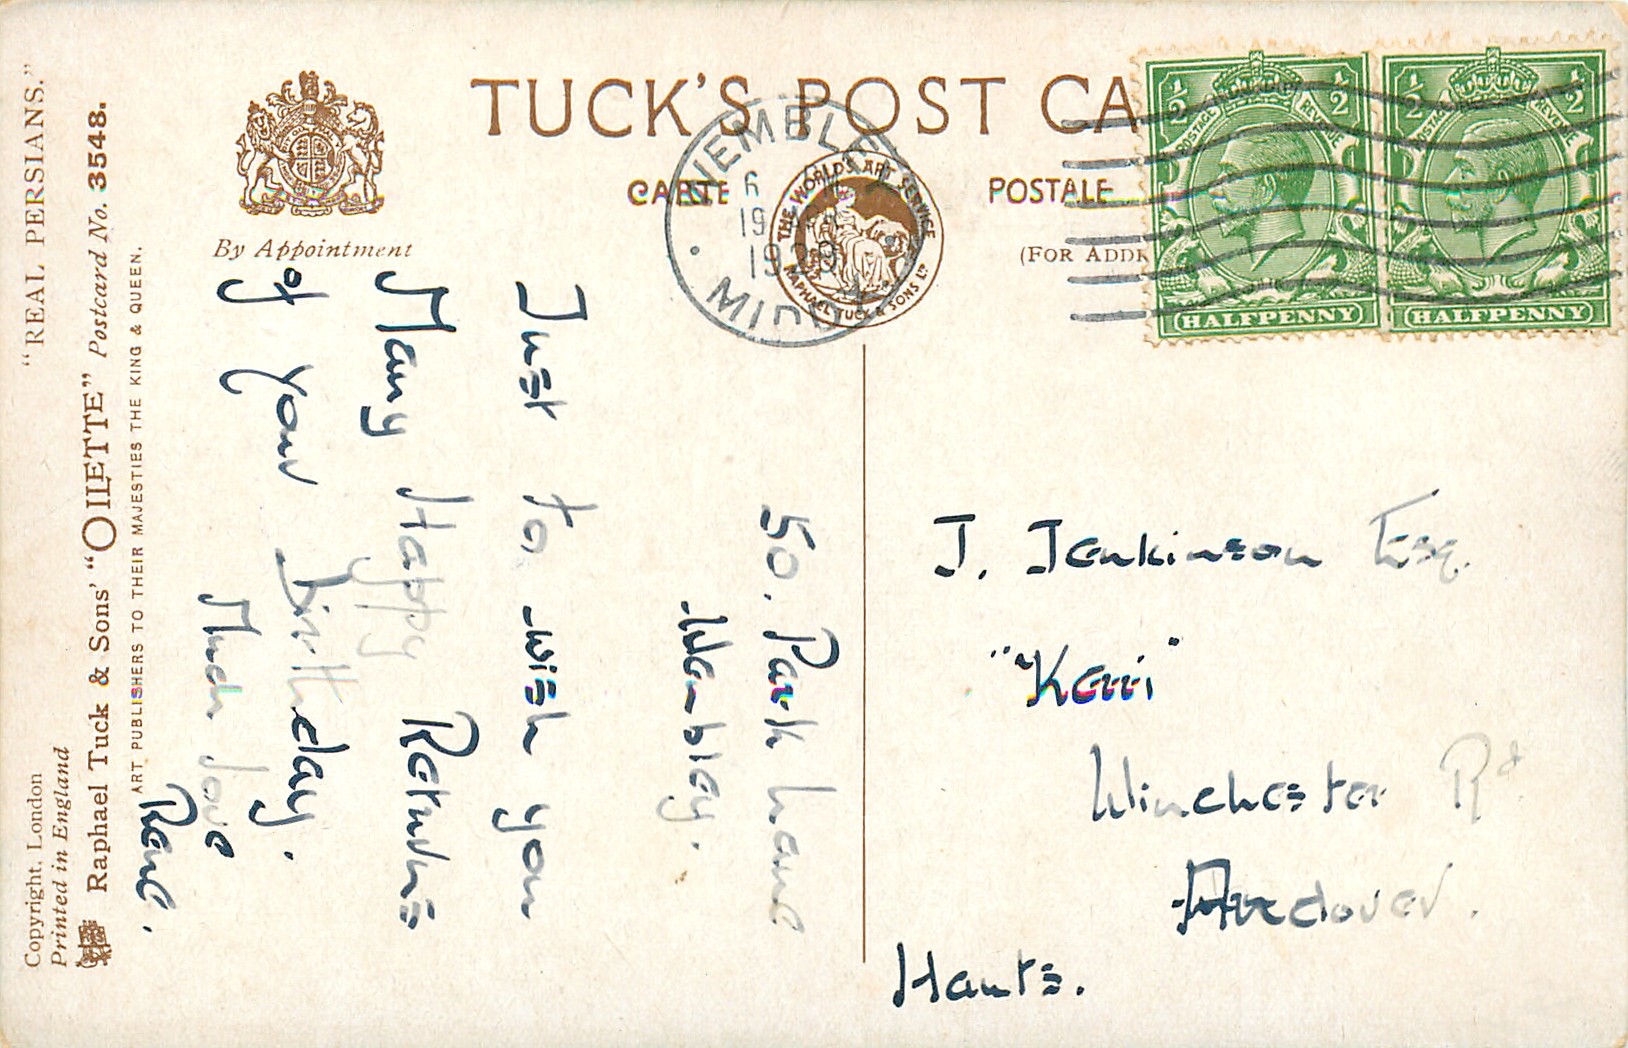 TUCK'S POST CA
CARTE POSTALE
(FOR ADDR
By Appointment
THE WORLD'S ART SERVICE
RAPHAEL TUCK & SONS LTD
WEMBLEY
6
19
19
MIDDX
½ ½
POSTAGE REVENUE
HALFPENNY
½ ½
POSTAGE REVENUE
HALFPENNY
"REAL PERSIANS."
Copyright, London
Printed in England
Raphael Tuck & Sons' "OILETTE" Postcard No. 3548.
ART PUBLISHERS TO THEIR MAJESTIES THE KING & QUEEN.
50. Park Lane
Wembley.
Just to wish you
Many Happy Returns
of your Birthday.
Much love
René.
J. Jenkinson Esq.
"Kerri"
Winchester Rd
Andover.
Hants.